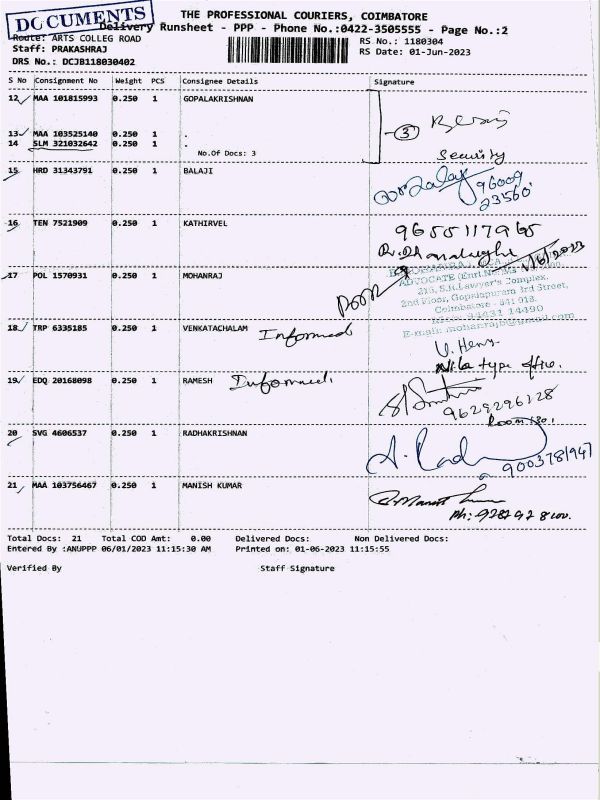 DOCUMENTS
THE PROFESSIONAL COURIERS, COIMBATORE
Delivery Runsheet - PPP - Phone No.:0422-3505555 - Page No.:2
Route: ARTS COLLEG ROAD
RS No.: 1180304
Staff: PRAKASHRAJ
RS Date: 01-Jun-2023
DRS No.: DCJB118030402
S No Consignment No Weight PCS Consignee Details Signature
12 MAA 101815993 0.250 1 GOPALAKRISHNAN
13 MAA 103525140 0.250 1 .
3
14 SLM 321032642 0.250 1 .
No.Of Docs: 3
Security
15 HRD 31343791 0.250 1 BALAJI
96009
23560
16 TEN 7521909 0.250 1 KATHIRVEL
9655117965
17 POL 1570931 0.250 1 MOHANRAJ
ADVOCATE
S.H.Lawyer's Complex,
2nd Floor, Gopalapuram 3rd Street,
Coimbatore - 641 018.
DOOR
18 TRP 6335185 0.250 1 VENKATACHALAM Informed
type office.
19 EDQ 20168098 0.250 1 RAMESH Informed.
9629296128
20 SVG 4606537 0.250 1 RADHAKRISHNAN
9003781947
21 MAA 103756467 0.250 1 MANISH KUMAR
Total Docs: 21 Total COD Amt: 0.00 Delivered Docs: Non Delivered Docs:
Entered By :ANUPPP 06/01/2023 11:15:30 AM Printed on: 01-06-2023 11:15:55
Verified By Staff Signature